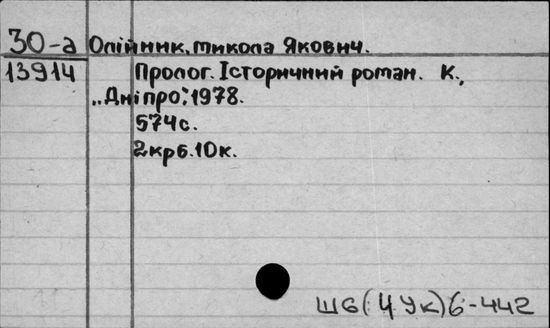 30-а Олійник, Микола Якович.
13914 Пролог. Історичний роман. К.,
„Дніпро", 1978.
574с.
2крб.10к.
Ш6(4Ук)6-442